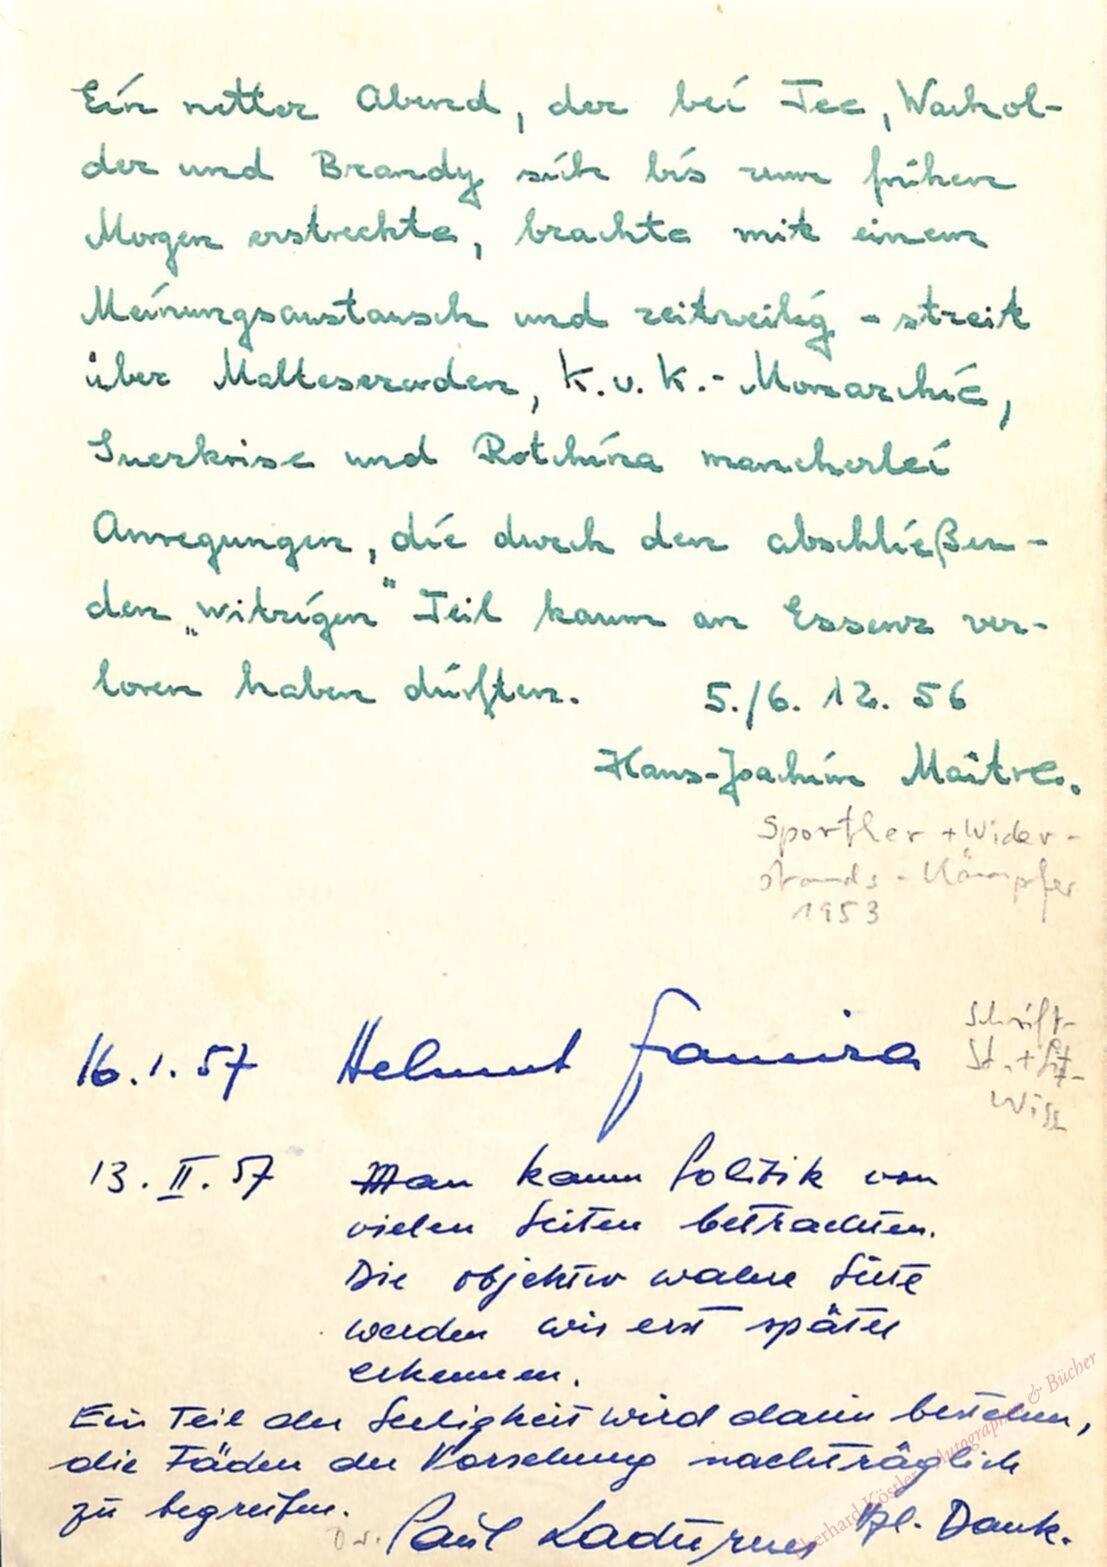 Ein netter Abend, der bei Tee, Wachol-
der und Brandy sich bis zum frühen
Morgen erstreckte, brachte mit einem
Meinungsaustausch und zeitweilig -streit
über Malteserorden, K.u.K.-Monarchie,
Suezkrise und Rotchina mancherlei
Anregungen, die durch den abschließen-
den „witzigen" Teil kaum an Essenz ver-
loren haben dürften. 5./6. 12. 56
Hans-Joachim Maître.
Sportler + Wider-
stands-Kämpfer
1953
16.1.57 Helmut
Schrift-
St. + Lit-
Wiss
13.II.57 Man kann Politik von
vielen Seiten betrachten.
Die objektiv wahre Seite
werden wir erst später
erkennen.
Ein Teil der Seeligkeit wird darin bestehen,
die Fäden der Vorsehung nachträglich
zu begreifen.
Dr. Paul Ladurner Hzl. Dank.
Eberhard Köstler Autographen & Bücher